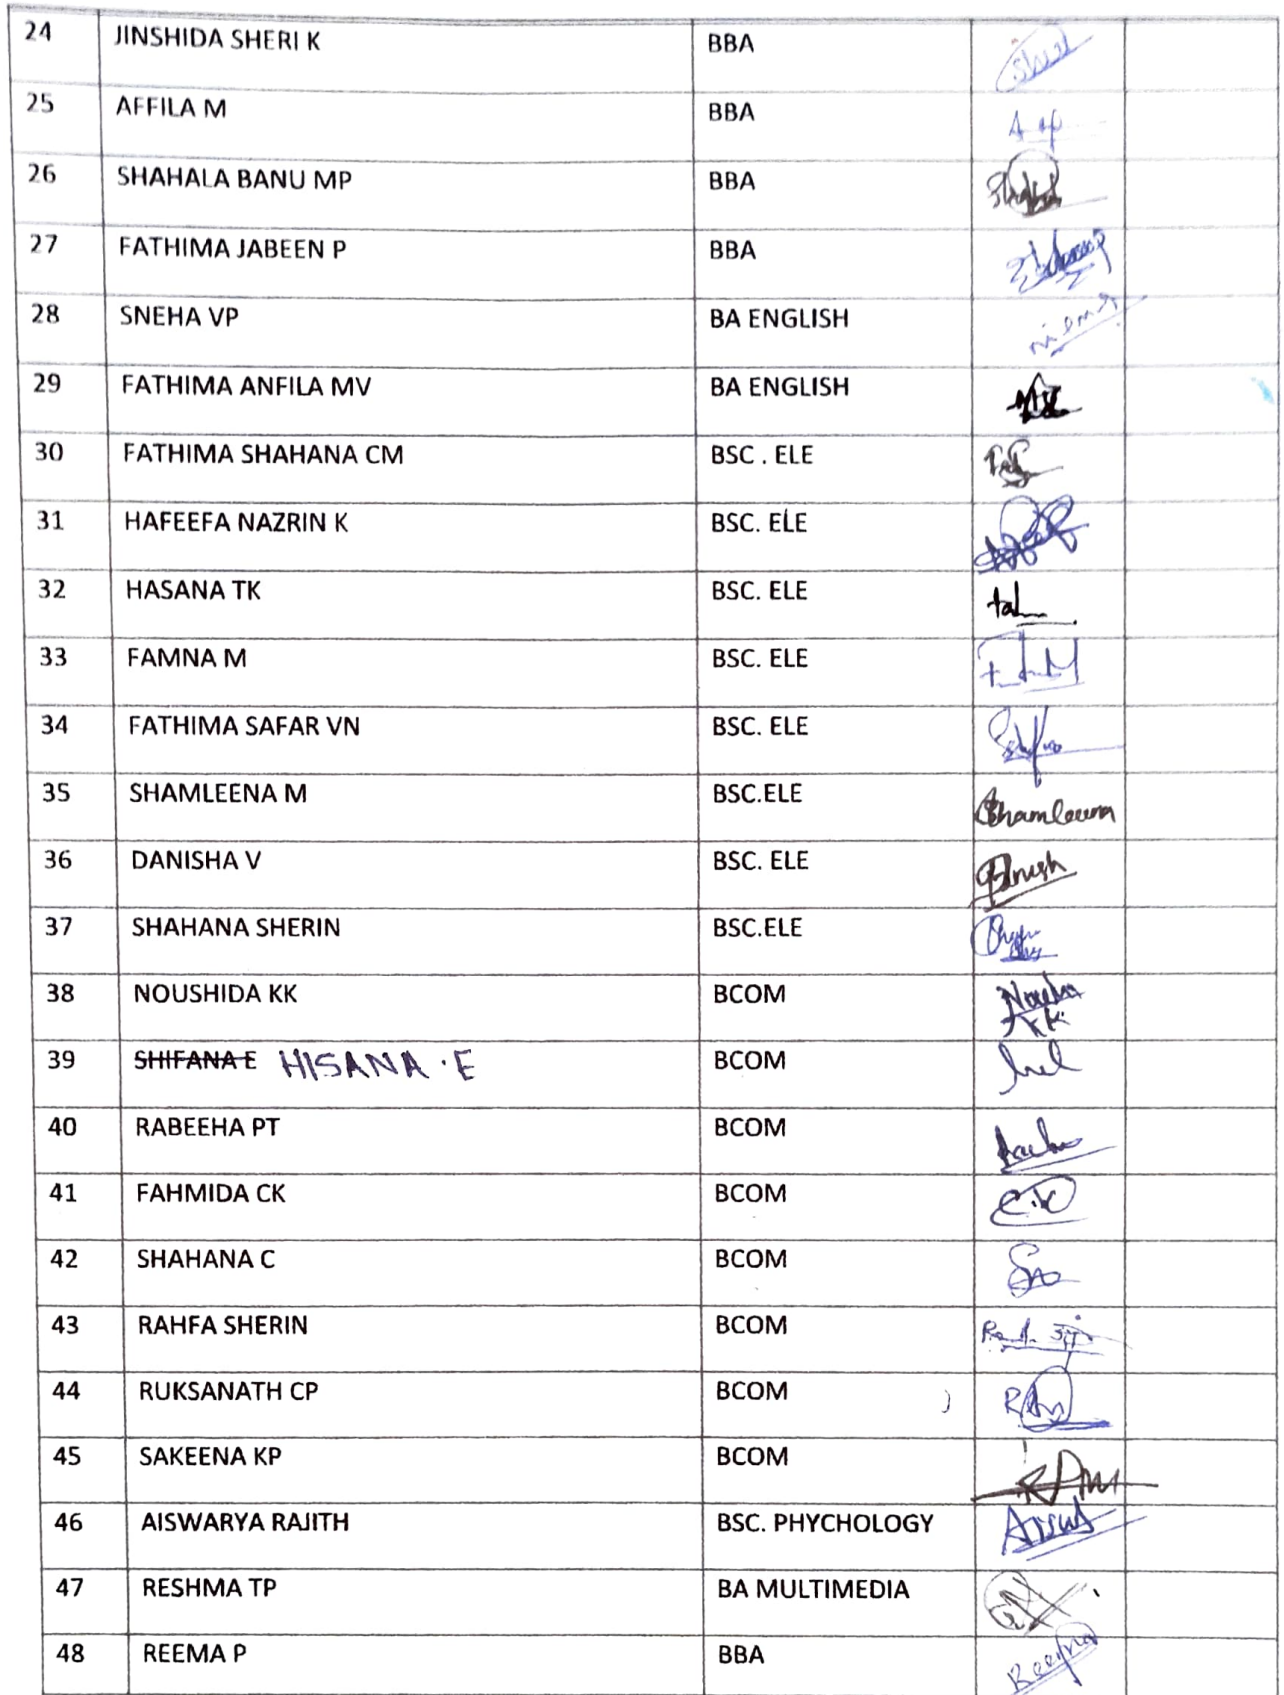 24 JINSHIDA SHERI K BBA
25 AFFILA M BBA
26 SHAHALA BANU MP BBA
27 FATHIMA JABEEN P BBA
28 SNEHA VP BA ENGLISH
29 FATHIMA ANFILA MV BA ENGLISH
30 FATHIMA SHAHANA CM BSC . ELE
31 HAFEEFA NAZRIN K BSC. ELE
32 HASANA TK BSC. ELE
33 FAMNA M BSC. ELE
34 FATHIMA SAFAR VN BSC. ELE
35 SHAMLEENA M BSC.ELE Shamleena
36 DANISHA V BSC. ELE
37 SHAHANA SHERIN BSC.ELE
38 NOUSHIDA KK BCOM
39 SHIFANA E HISANA . E BCOM
40 RABEEHA PT BCOM
41 FAHMIDA CK BCOM
42 SHAHANA C BCOM
43 RAHFA SHERIN BCOM
44 RUKSANATH CP BCOM
45 SAKEENA KP BCOM
46 AISWARYA RAJITH BSC. PHYCHOLOGY
47 RESHMA TP BA MULTIMEDIA
48 REEMA P BBA Reema